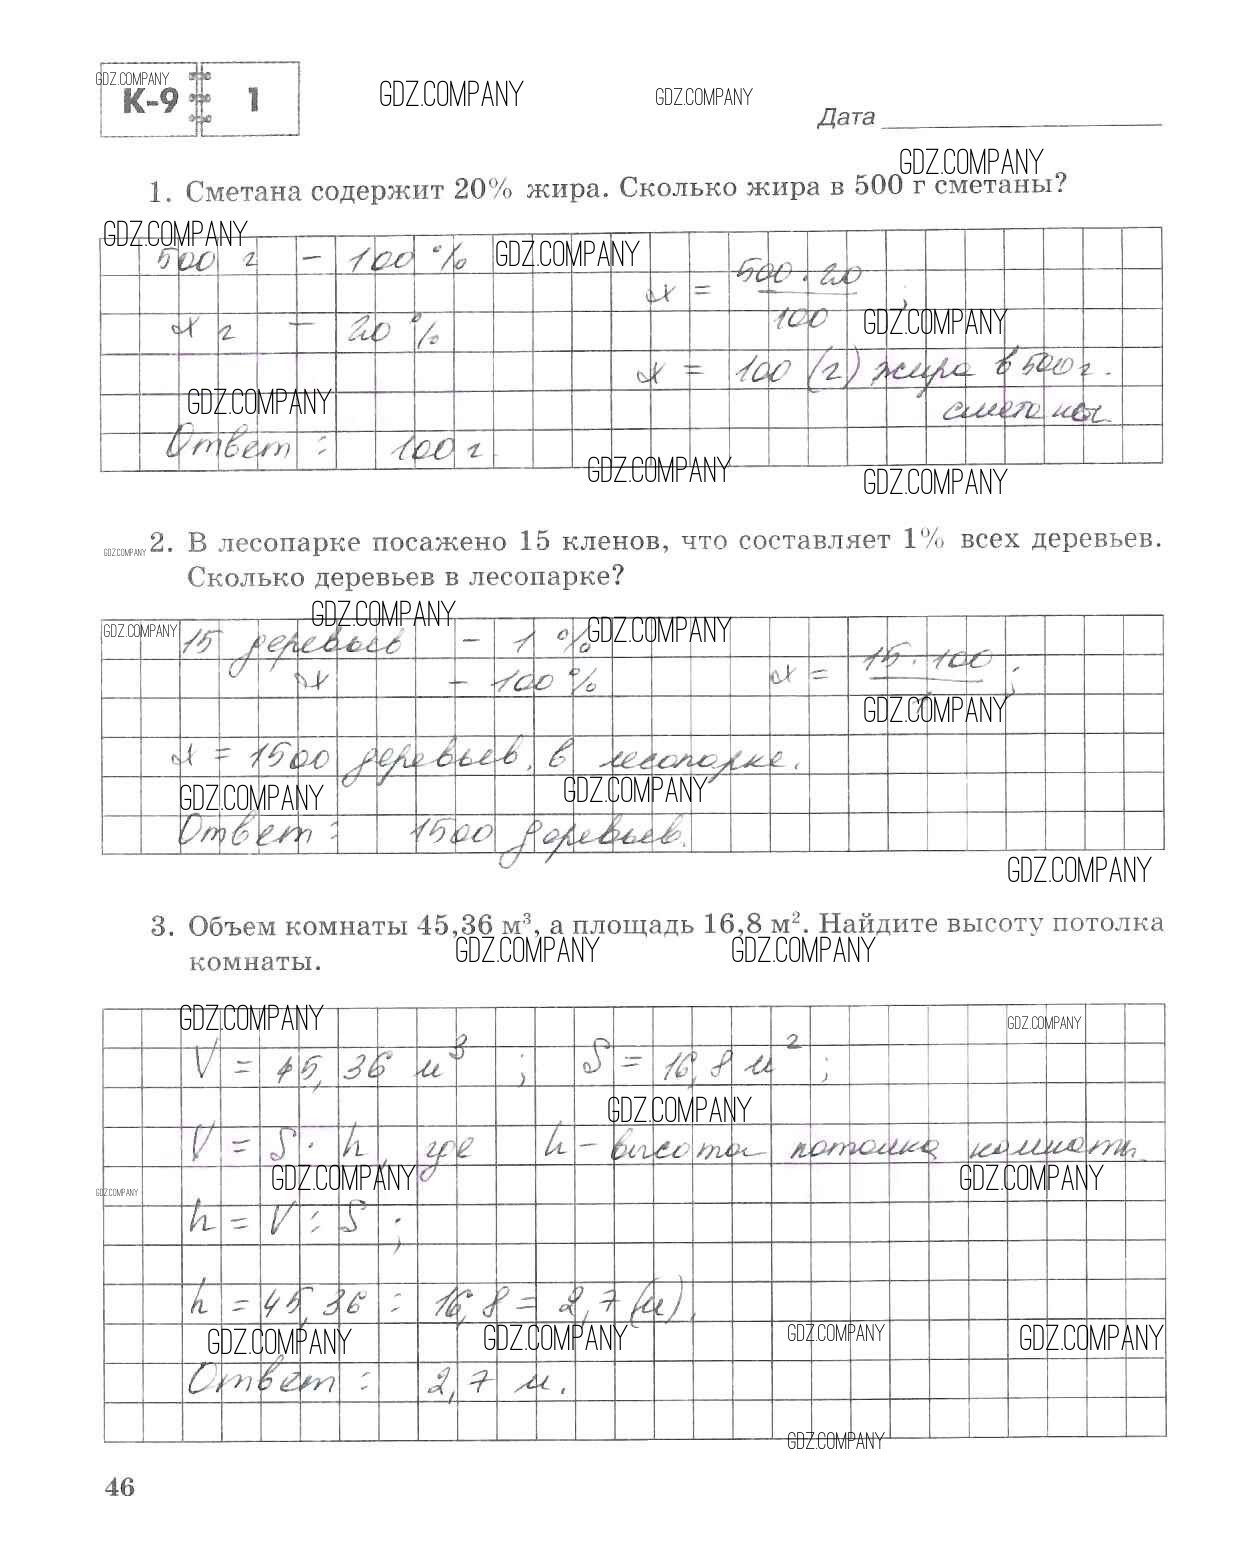 GDZ.COMPANY
К-9 1
GDZ.COMPANY
GDZ.COMPANY
Дата
GDZ.COMPANY
1. Сметана содержит 20% жира. Сколько жира в 500 г сметаны?
GDZ.COMPANY
500 г – 100 % GDZ.COMPANY
x = 500 · 20 / 100 ;
x г – 20 % GDZ.COMPANY
x = 100 (г) жира в 500 г.
GDZ.COMPANY сметаны
Ответ : 100 г.
GDZ.COMPANY GDZ.COMPANY
GDZ.COMPANY
2. В лесопарке посажено 15 кленов, что составляет 1% всех деревьев.
Сколько деревьев в лесопарке?
GDZ.COMPANY
GDZ.COMPANY GDZ.COMPANY
15 деревьев – 1 %
x – 100 % x = 15 · 100 / 1 ;
GDZ.COMPANY
x = 1500 деревьев в лесопарке.
GDZ.COMPANY GDZ.COMPANY
Ответ : 1500 деревьев.
GDZ.COMPANY
3. Объем комнаты 45,36 м³, а площадь 16,8 м². Найдите высоту потолка
GDZ.COMPANY GDZ.COMPANY
комнаты.
GDZ.COMPANY GDZ.COMPANY
V = 45,36 м³ ; S = 16,8 м² ;
GDZ.COMPANY
V = S · h, где h – высота потолка комнаты
GDZ.COMPANY GDZ.COMPANY
GDZ.COMPANY
h = V : S ;
h = 45,36 : 16,8 = 2,7 (м).
GDZ.COMPANY GDZ.COMPANY GDZ.COMPANY GDZ.COMPANY
Ответ : 2,7 м.
GDZ.COMPANY
46